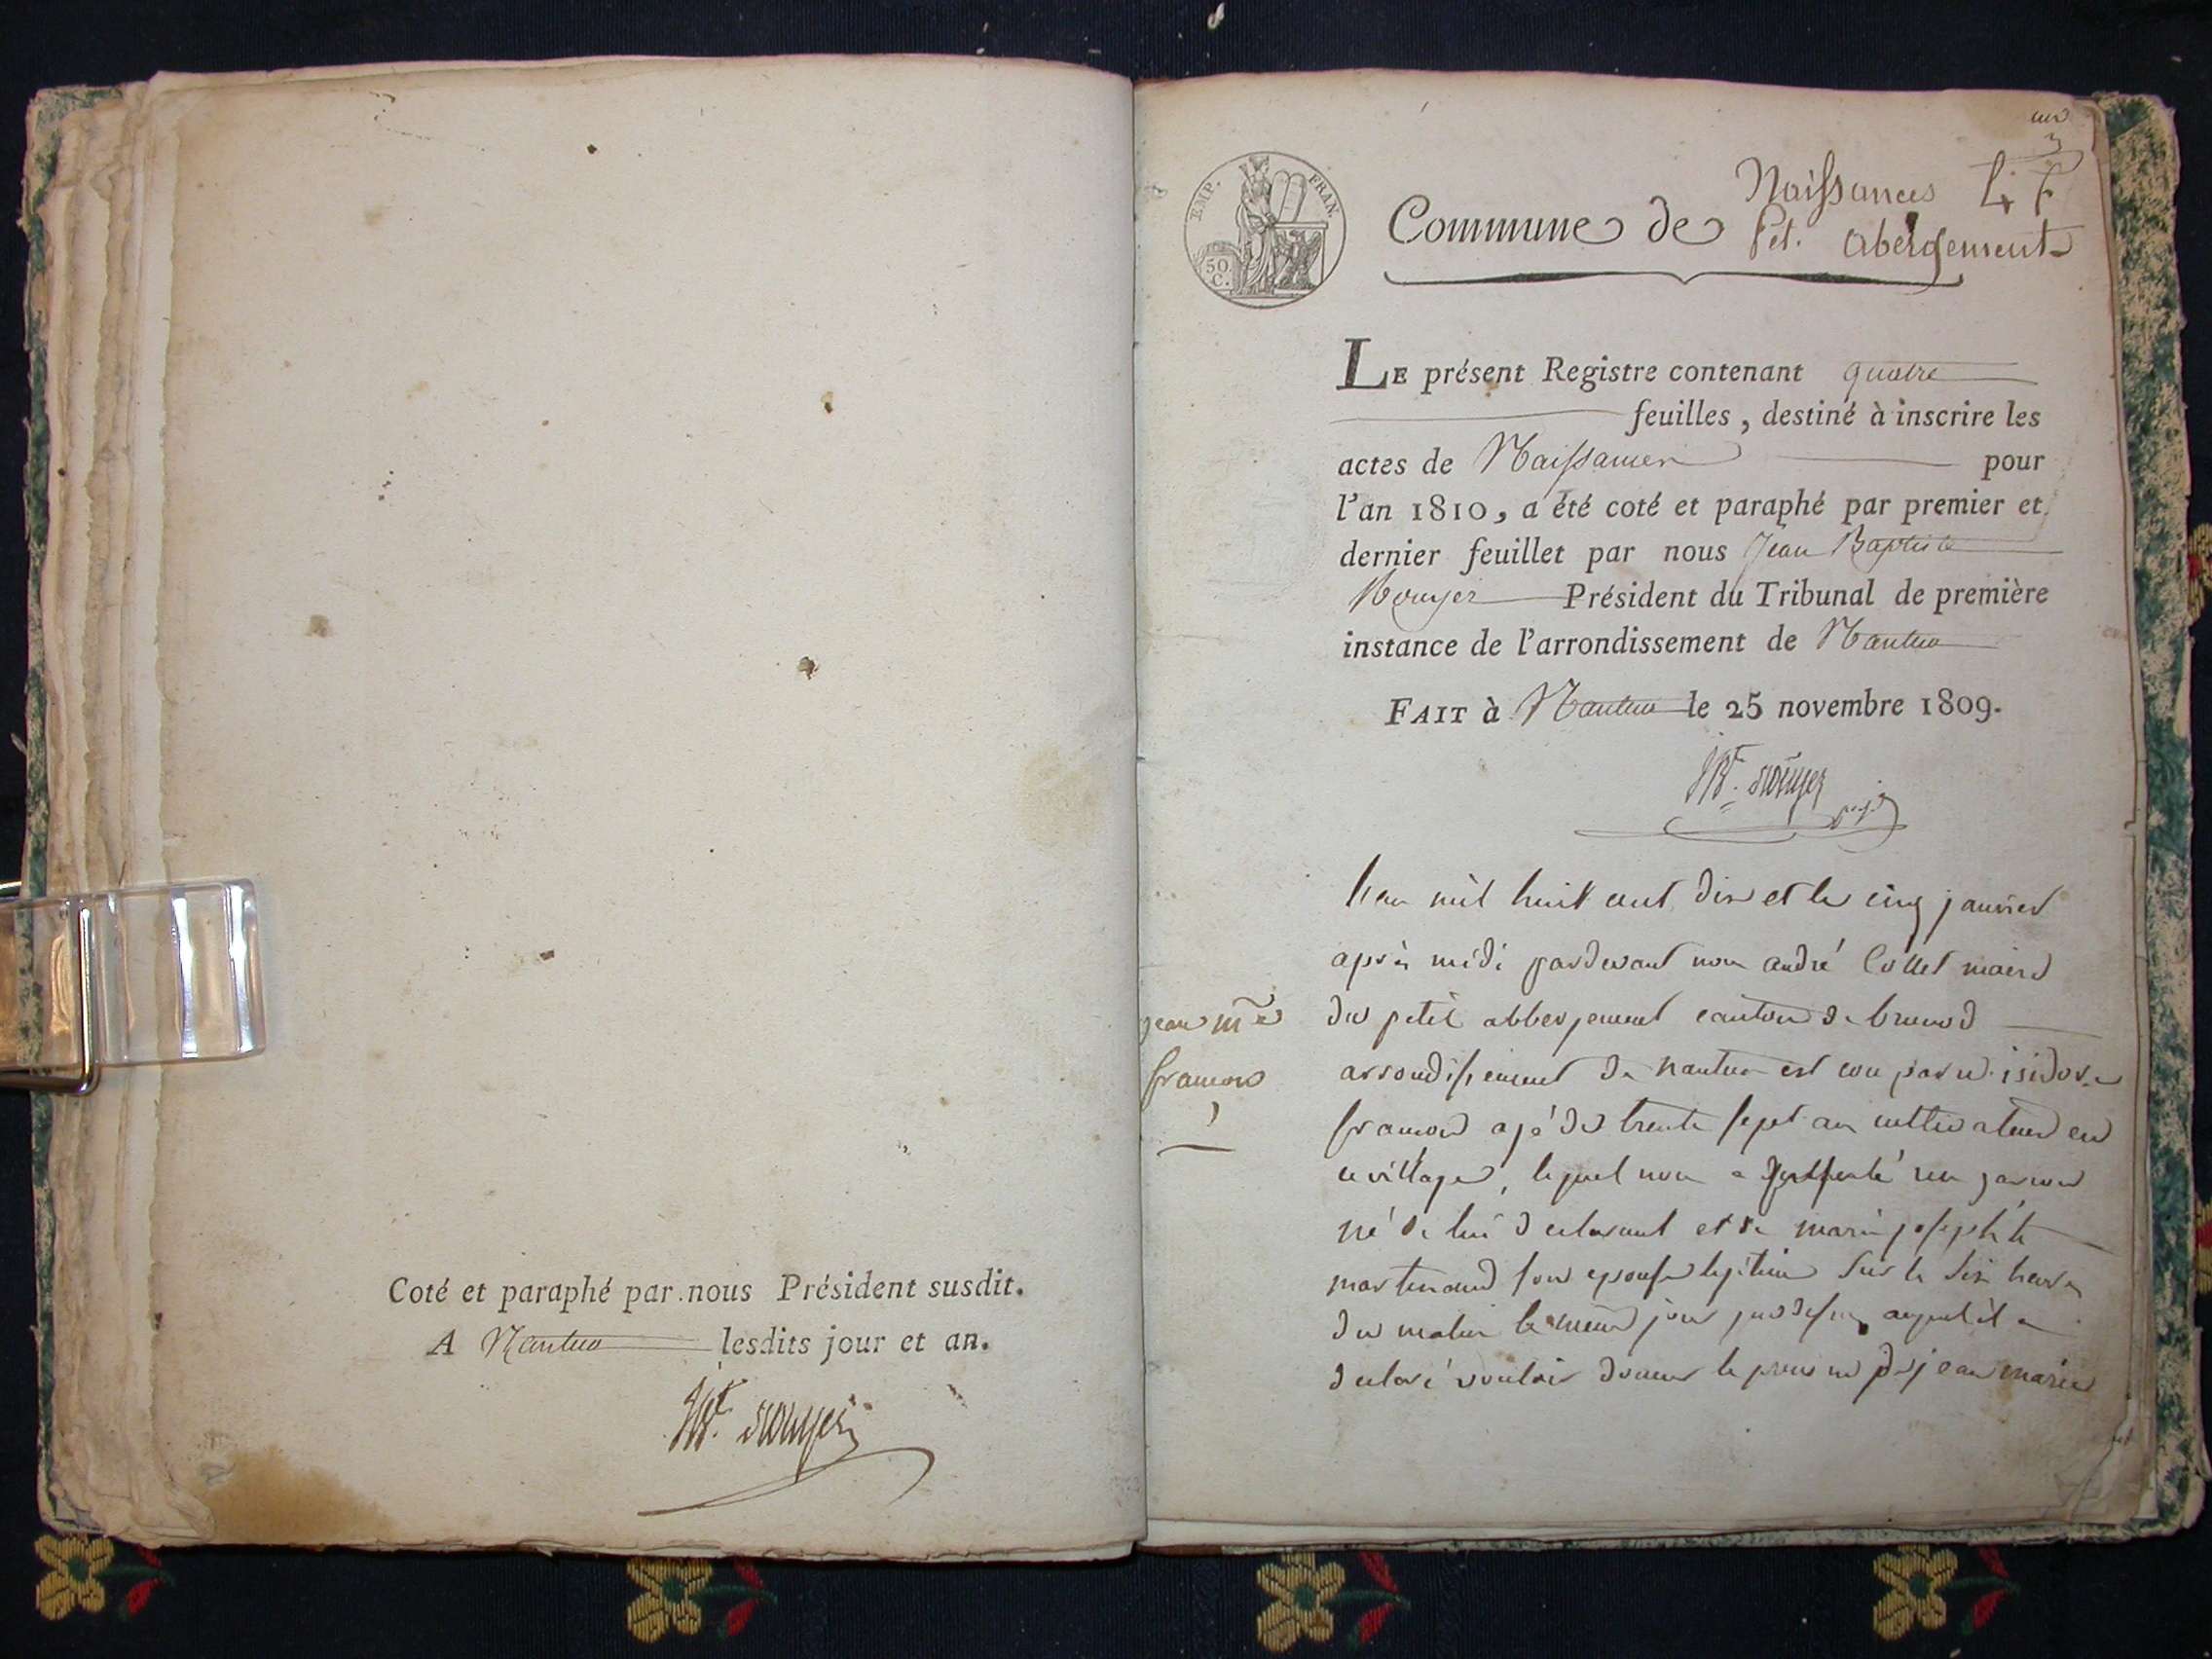 Coté et paraphé par nous Président susdit.
A Nantua lesdits jour et an.
JBte. Rouyer
EMP. FRAN.
50 C.
un
Naissances 4 f
Commune de Pet. Abergement
LE présent Registre contenant quatre
feuilles, destiné à inscrire les
actes de Naissances pour
l'an 1810, a été coté et paraphé par premier et
dernier feuillet par nous Jean Baptiste
Rouyer Président du Tribunal de première
instance de l'arrondissement de Nantua
FAIT à Nantua le 25 novembre 1809.
JBte. Rouyer
jean mie
francon
1
l'an mil huit cent dix et le cinq janvier
après midi pardevant nous andré Collet maire
du petit abbergement canton de brenod
arrondissement de nantua est comparu isidore
francon agé de trente sept ans cultivateur en
ce village, lequel nous a présenté un garcon
né de lui declarant et de marie josephte
martinand son epouse legitime sur les six heures
du matin le meme jour auquel il a
declaré vouloir donner le prenom de jean marie